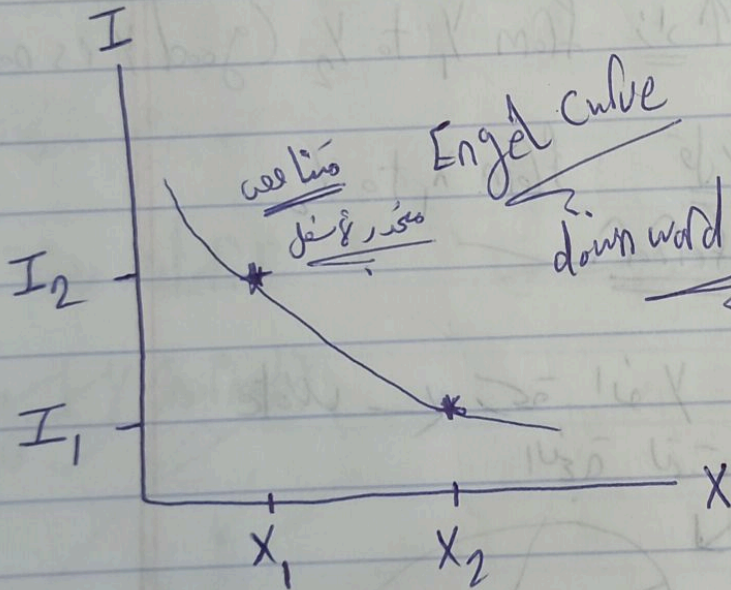 I
Engel Curve
متناقص
منحدر لأسفل
downward
I₂
I₁
X
X₁
X₂